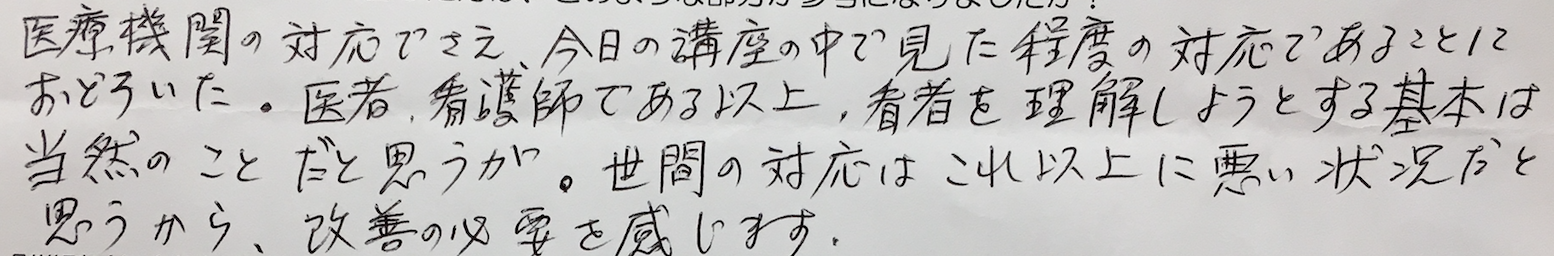 医療機関の対応でさえ、今日の講座の中で見た程度の対応であることに
おどろいた。医者、看護師である以上、看者を理解しようとする基本は
当然のことだと思うが。世間の対応はこれ以上に悪い状況だと
思うから、改善の必要を感じます.